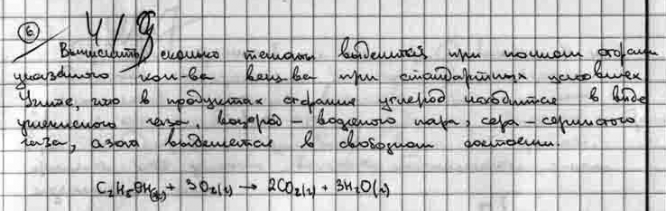 6 4/g
Вычислить, сколько теплоты выделится при полном сгорании
указанного кол-ва вещ-ва при стандартных условиях
Учтите, что в продуктах сгорания углерод находится в виде
углекислого газа, водород - водяного пара, сера - сернистого
газа, азот выделяется в свободном состоянии.
C₂H₅OH(г) + 3O₂(г) → 2CO₂(г) + 3H₂O(г)